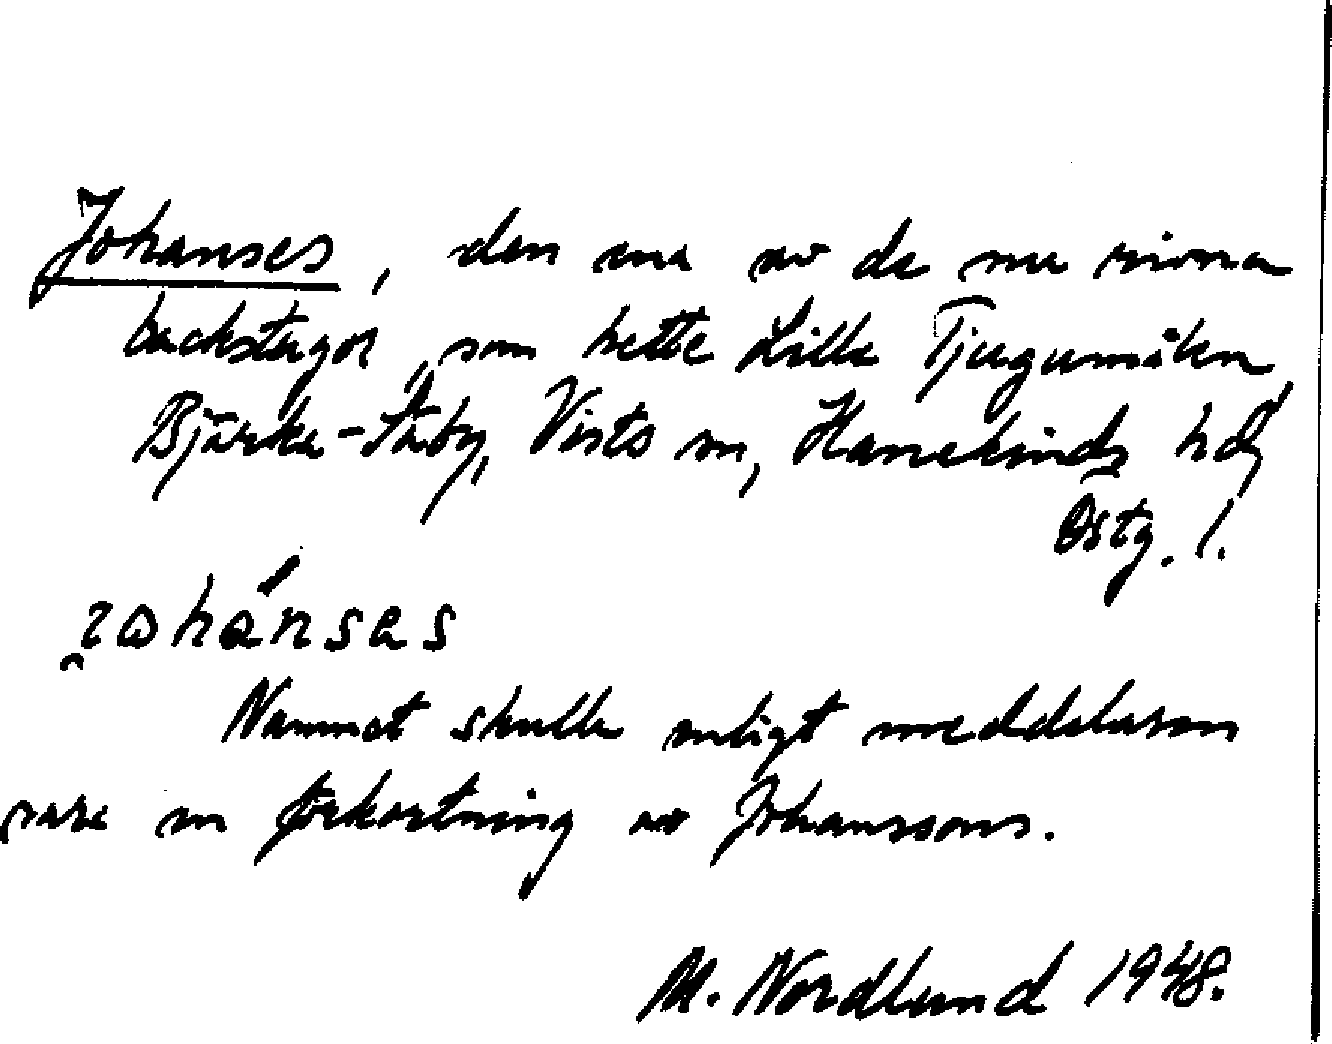 Johanses, den ena av de nu rivna
backstugor, som hette Lilla Tjugumålen,
Bjärka-Säby, Vists sn, Hanekinds hd,
Östg. l.
Namnet skulle enligt meddelaren
vara en förkortning av Johanssons.
M. Nordlund 1948.